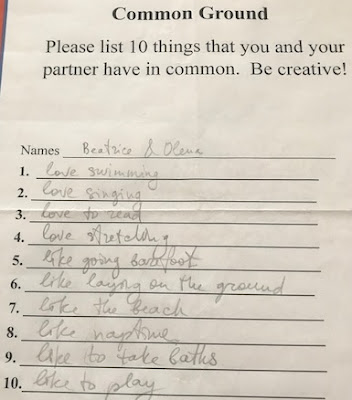 Common Ground
Please list 10 things that you and your
partner have in common. Be creative!
Names Beatrice & Olena
1. love swimming
2. love singing
3. love to read
4. love stretching
5. like going barefoot
6. like laying on the ground
7. like the beach
8. like naptime
9. like to take baths
10. like to play